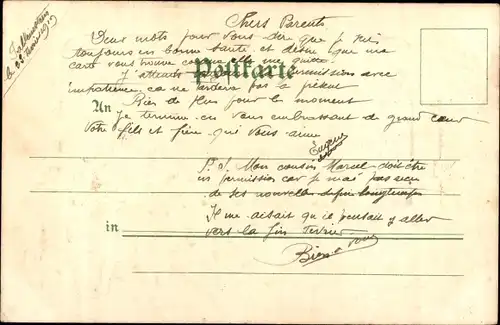 Chers Parents
Deux mots pour vous dire que je suis
toujours en bonne santé et desire que ma
carte vous trouve comme elle me quitte.
J'attends permission avec
Postkarte
impatience, ça ne tardera pas la
An
Rien de plus pour le moment
Je termine en vous embrassant de grand cœur
Votre fils et frère qui vous aime
P.S. Mon cousin Marcel doit être
en permission car je n'ai pas reçu
de ses nouvelles depuis longtemps
Il me disait qu'il pensait y aller
in
vers la fin février
Bien à vous